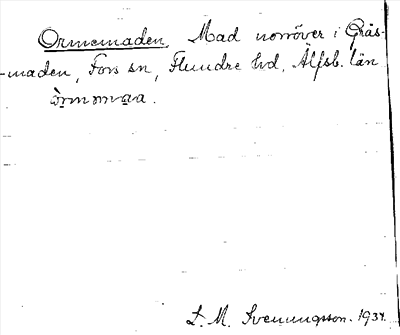 Ormemaden, Mad norröver i Gräs-
-maden, Fors sn, Flundre hd, Älfsb. län
òrmmaa.
L. M. Svenungsson. 1934.